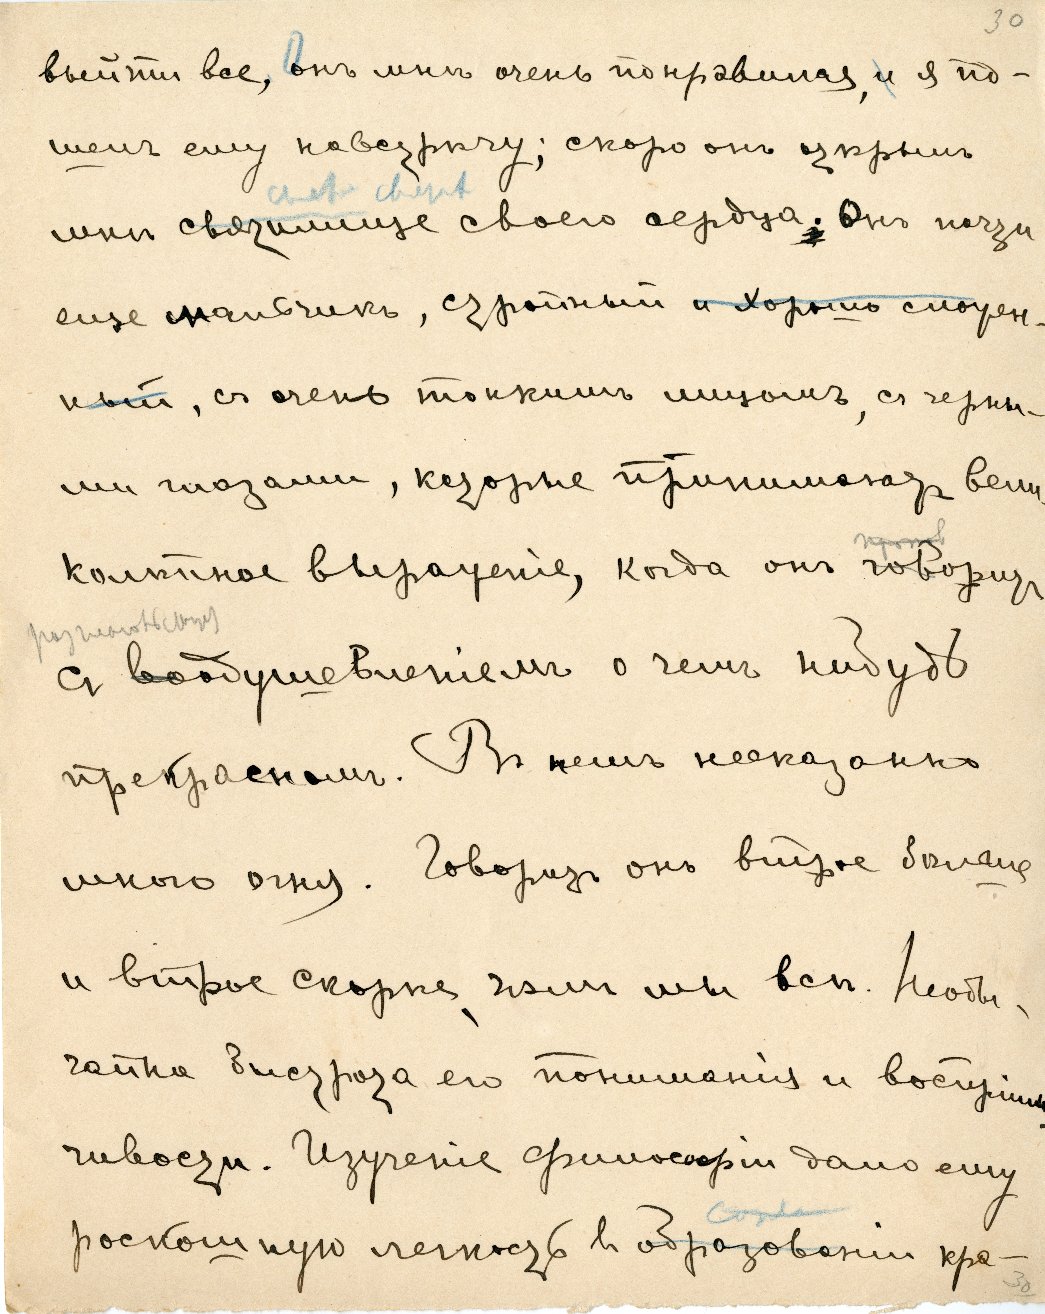 30
выйти все, Онъ мнѣ очень понравился, и я по-
шелъ ему навстрѣчу; скоро онъ открылъ
мнѣ святилище своего сердца; Онъ почти
еще мальчикъ, стройный и хорошо сложен-
ный, съ очень тонкимъ лицомъ, съ черны-
ми глазами, которые принимаютъ вели-
колѣпное выраженіе, когда онъ говоритъ
съ воодушевленіемъ о чемъ нибудь
прекрасномъ. Въ немъ несказанно
много огня. Говоритъ онъ втрое больше
и втрое скорѣе, чѣмъ мы всѣ. Необы-
чайна быстрота его пониманія и воспріим-
чивости. Изученіе философіи дало ему
роскошную легкость въ образованіи кра-
30